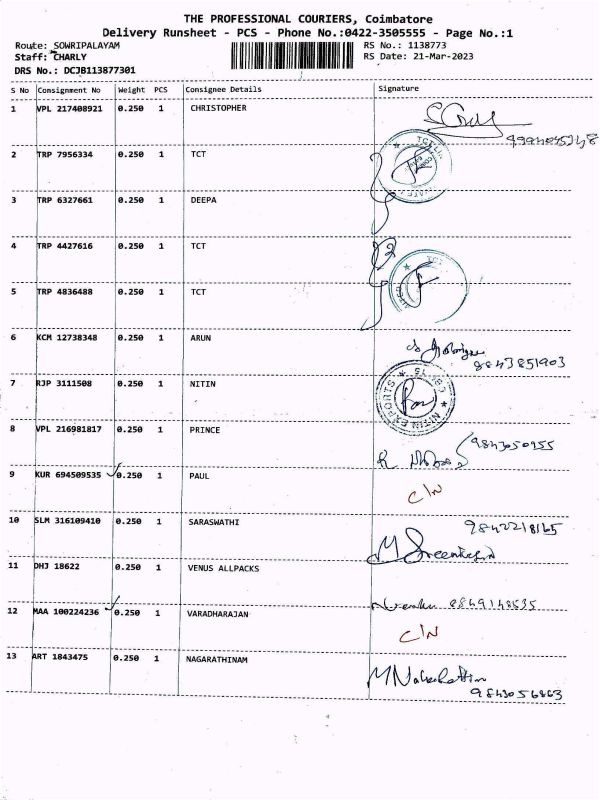 THE PROFESSIONAL COURIERS, Coimbatore
Delivery Runsheet - PCS - Phone No.:0422-3505555 - Page No.:1
Route: SOWRIPALAYAM RS No.: 1138773
Staff: CHARLY RS Date: 21-Mar-2023
DRS No.: DCJB113877301
S No Consignment No Weight PCS Consignee Details Signature
1 VPL 217408921 0.250 1 CHRISTOPHER
2 TRP 7956334 0.250 1 TCT
3 TRP 6327661 0.250 1 DEEPA
4 TRP 4427616 0.250 1 TCT
5 TRP 4836488 0.250 1 TCT
6 KCM 12738348 0.250 1 ARUN
9843851903
7 RJP 3111508 0.250 1 NITIN
NITIN EXPORTS
8 VPL 216981817 0.250 1 PRINCE
9843050955
9 KUR 694509535 0.250 1 PAUL
C/N
10 SLM 316109410 0.250 1 SARASWATHI
9842218165
11 DHJ 18622 0.250 1 VENUS ALLPACKS
12 MAA 100224236 0.250 1 VARADHARAJAN
C/N
13 ART 1843475 0.250 1 NAGARATHINAM
9843056863